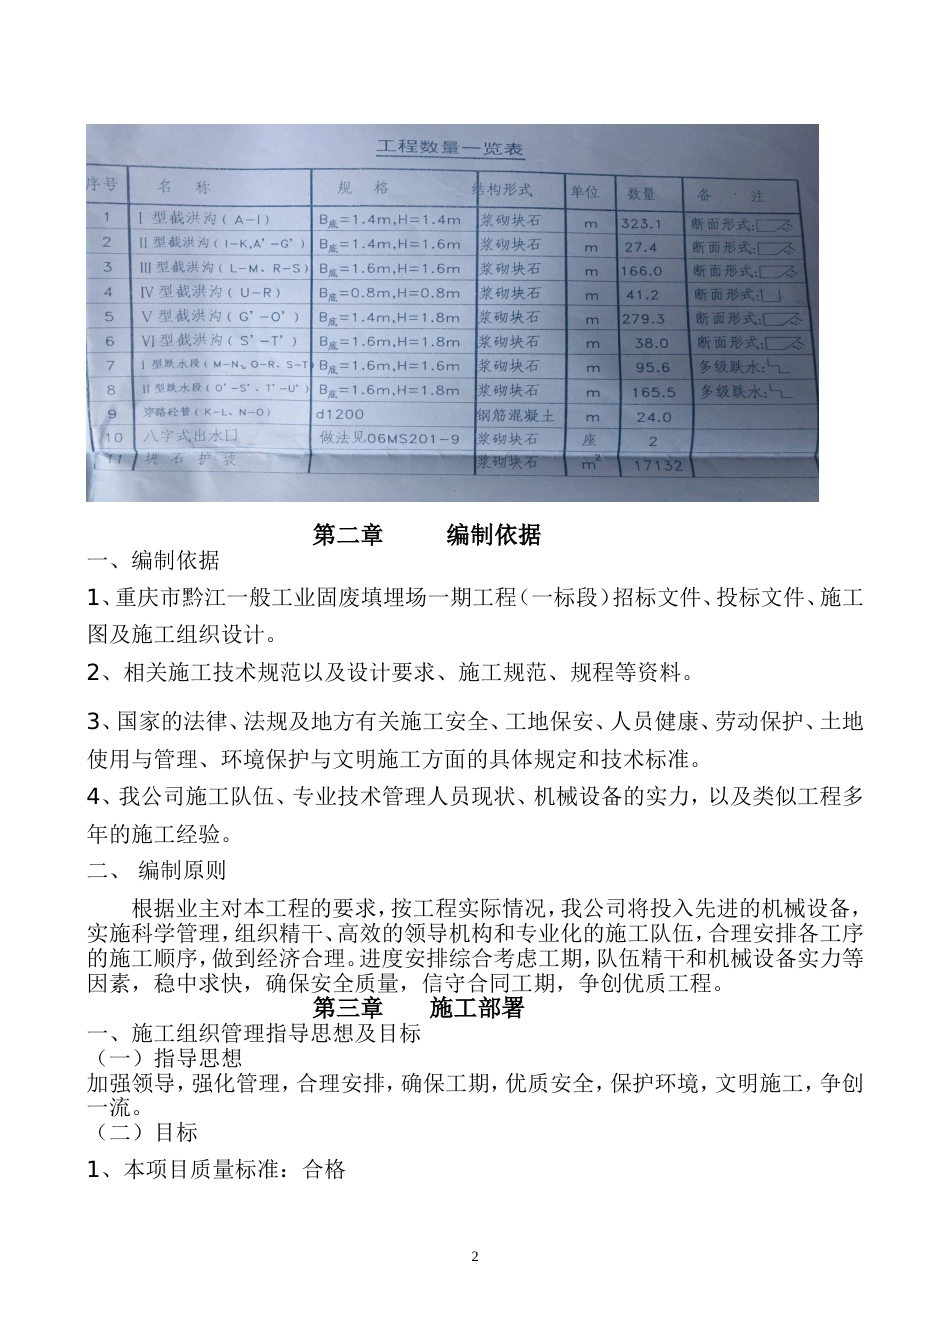 工程数量一览表
序号 名 称 规 格 结构形式 单位 数量 备 注
1 Ⅰ型截洪沟(A-I) B底=1.4m,H=1.4m 浆砌块石 m 323.1 断面形式:
2 Ⅱ型截洪沟(I-K,A'-G') B底=1.4m,H=1.6m 浆砌块石 m 27.4 断面形式:
3 Ⅲ型截洪沟(L-M、R-S) B底=1.6m,H=1.6m 浆砌块石 m 166.0 断面形式:
4 Ⅳ型截洪沟(U-R) B底=0.8m,H=0.8m 浆砌块石 m 41.2 断面形式:
5 Ⅴ型截洪沟(G'-O') B底=1.4m,H=1.8m 浆砌块石 m 279.3 断面形式:
6 Ⅵ型截洪沟(S'-T') B底=1.6m,H=1.8m 浆砌块石 m 38.0 断面形式:
7 Ⅰ型跌水段(M-N、O-R、S-T) B底=1.6m,H=1.6m 浆砌块石 m 95.6 多级跌水:
8 Ⅱ型跌水段(O'-S'、T'-U') B底=1.6m,H=1.8m 浆砌块石 m 165.5 多级跌水:
9 穿路砼管(K-L、N-O) d1200 钢筋混凝土 m 24.0
10 八字式出水口 做法见06MS201-9 浆砌块石 座 2
11 块 石 护 坡 浆砌块石 m² 17132
第二章 编制依据
一、编制依据
1、重庆市黔江一般工业固废填埋场一期工程（一标段）招标文件、投标文件、施工
图及施工组织设计。
2、相关施工技术规范以及设计要求、施工规范、规程等资料。
3、国家的法律、法规及地方有关施工安全、工地保安、人员健康、劳动保护、土地
使用与管理、环境保护与文明施工方面的具体规定和技术标准。
4、我公司施工队伍、专业技术管理人员现状、机械设备的实力，以及类似工程多
年的施工经验。
二、 编制原则
根据业主对本工程的要求，按工程实际情况，我公司将投入先进的机械设备，
实施科学管理，组织精干、高效的领导机构和专业化的施工队伍，合理安排各工序
的施工顺序，做到经济合理。进度安排综合考虑工期，队伍精干和机械设备实力等
因素，稳中求快，确保安全质量，信守合同工期，争创优质工程。
第三章 施工部署
一、施工组织管理指导思想及目标
（一）指导思想
加强领导，强化管理，合理安排，确保工期，优质安全，保护环境，文明施工，争创
一流。
（二）目标
1、本项目质量标准：合格
2